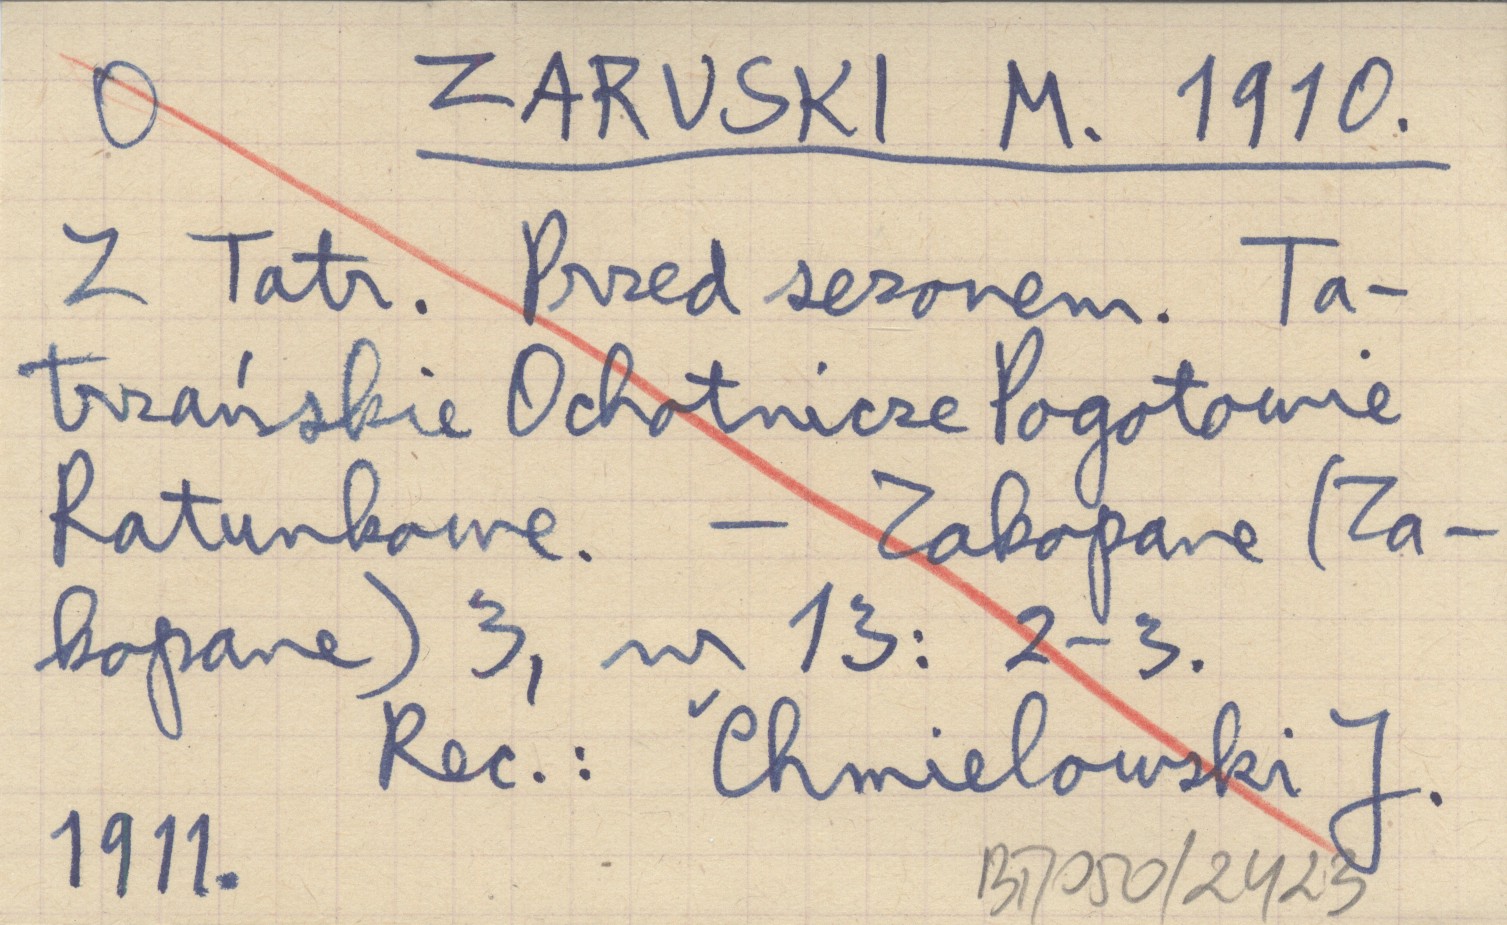 O ZARUSKI M. 1910.
Z Tatr. Przed sezonem. Ta-
trzańskie Ochotnicze Pogotowie
Ratunkowe. — Zakopane (Za-
kopane) 3, nr 13: 2-3.
Rec.: ˇChmielowski J.
1911.
BT/050/2423